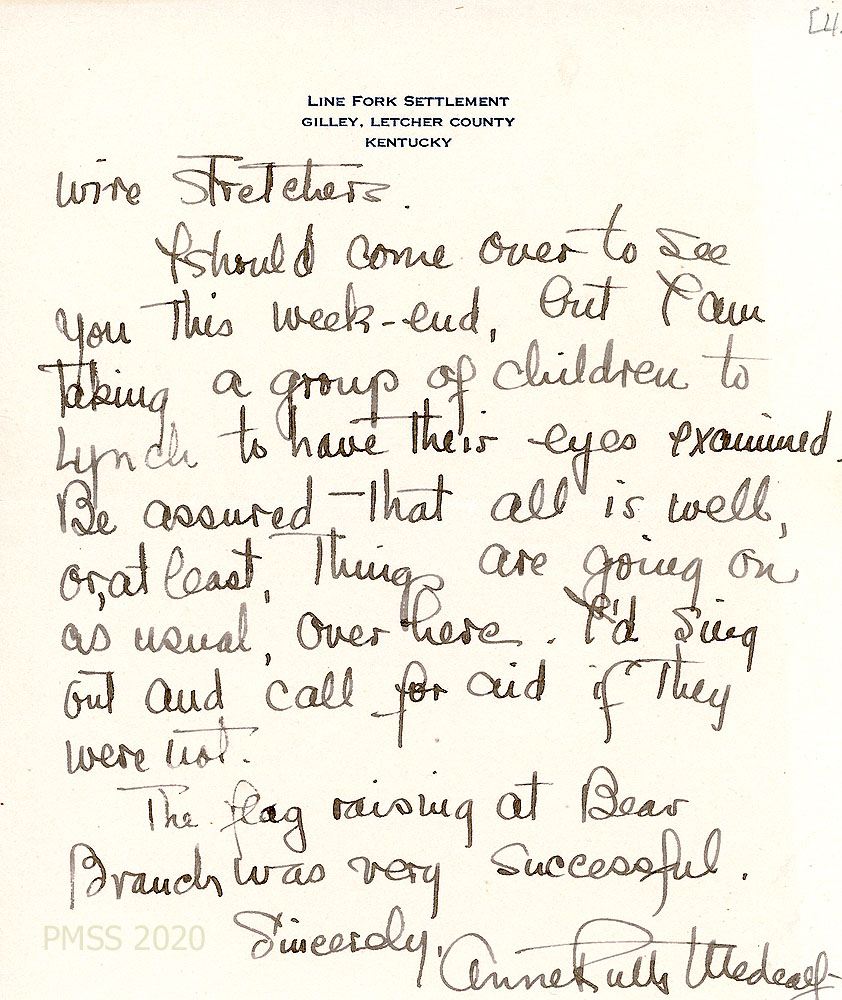 [4.
LINE FORK SETTLEMENT
GILLEY, LETCHER COUNTY
KENTUCKY
wire stretchers.
I should come over to see
you this week-end, but I am
taking a group of children to
Lynch to have their eyes examined.
Be assured that all is well,
or, at least, things are going on
as usual, over here. I'd sing
out and call for aid if they
were not.
The flag raising at Bear
Branch was very successful.
Sincerely,
Anne Ruth Medcalf
PMSS 2020